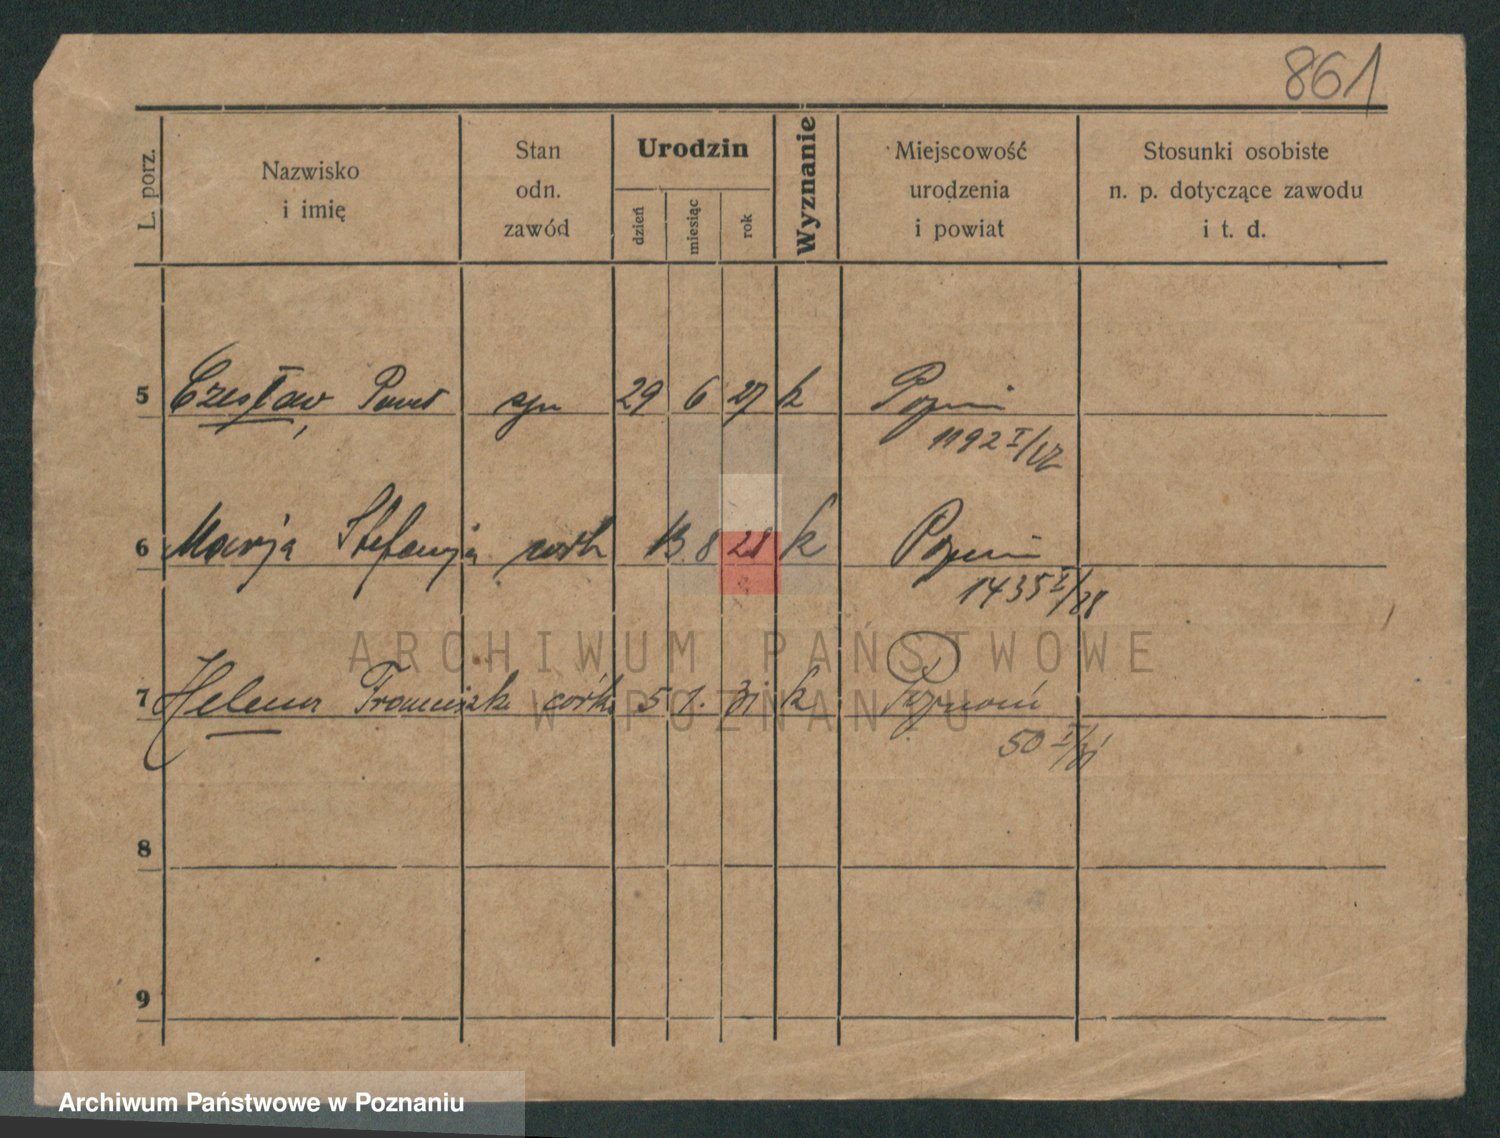 861
L. porz.
Nazwisko
i imię
Stan
odn.
zawód
Urodzin
dzień
miesiąc
rok
Wyznanie
Miejscowość
urodzenia
i powiat
Stosunki osobiste
n. p. dotyczące zawodu
i t. d.
5 Czesław, Paweł syn 29 6 27 k Poznań
1192 I/27
6 Marja Stefanja córk 13 8 28 k Poznań
1435 I/28
ARCHIWUM PAŃSTWOWE
7 Helena Franciszk córk 5 1. 31 k Poznań
W POZNANIU
50 I/31
8
9
Archiwum Państwowe w Poznaniu